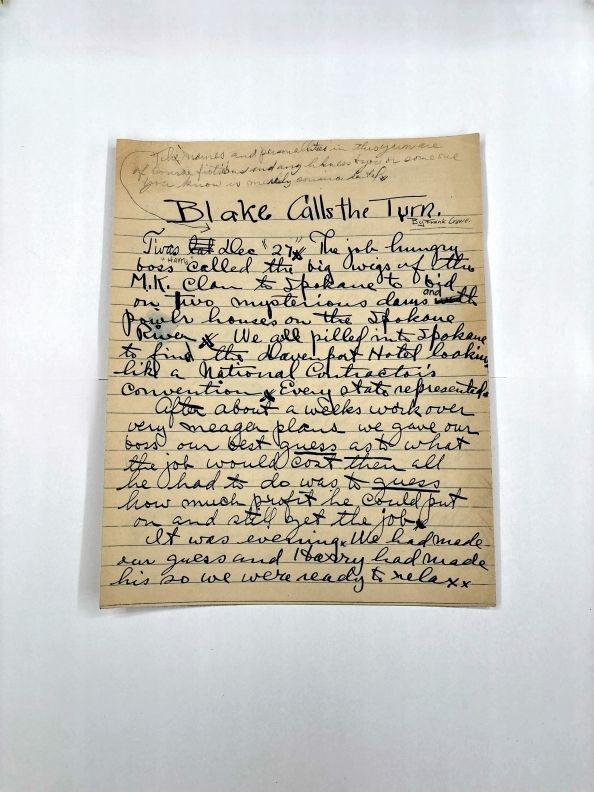 The names and personalities in this yarn are
of course fictious and any likeness to you or someone
you know is merely coincidental.
Blake Calls the Turn.
By Frank Crowe.
Twas Dec "27" x The job hungry
"Harry"
boss called the big wigs of the
M.K. Clan to Spokane to bid
on two mysterious dams and
power houses on the Spokane
River x We all pilled into Spokane
to find the Davenport Hotel looking
like a National Contractor's
Convention x Every state represented x
After about a weeks work over
very meager plans we gave our
boss our best guess as to what
the job would cost then all
he had to do was to guess
how much profit he could put
on and still get the job x
It was evening x We had made
our guess and Harry had made
his so we were ready to relax x